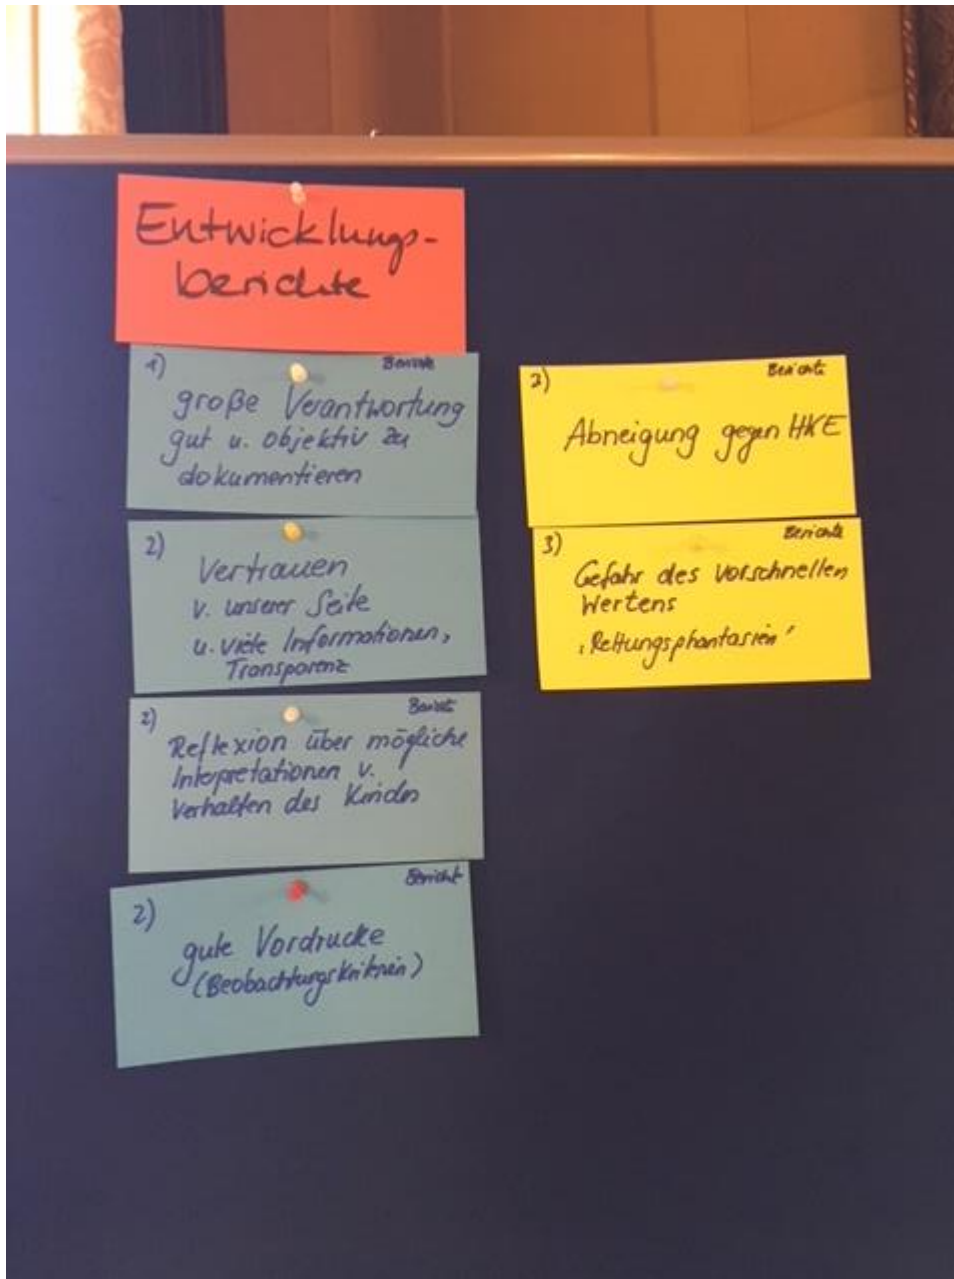 Entwicklungs-
berichte
1) Berichte
große Verantwortung
gut u. objektiv zu
dokumentieren
2)
Vertrauen
v. unserer Seite
u. viele Informationen,
Transparenz
2) Bericht
Reflexion über mögliche
Interpretationen v.
Verhalten des Kindes
2) Bericht
gute Vordrucke
(Beobachtungskriterien)
3) Berichte
Abneigung gegen HKE
3) Berichte
Gefahr des vorschnellen
Wertens
"Rettungsphantasien"